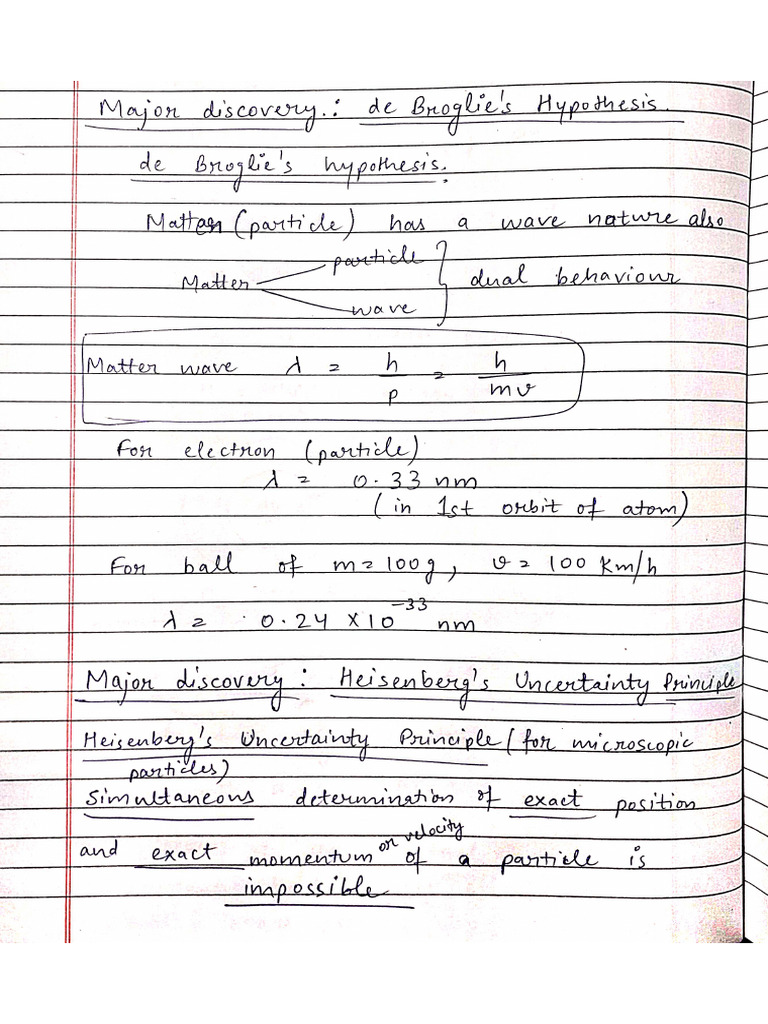 Major discovery.: de Broglie's Hypothesis.
de Broglie's hypothesis.
Matter (particle) has a wave nature also
Matter particle wave } dual behaviour
Matter wave λ = h/p = h/mv
For electron (particle)
λ = 0.33 nm
(in 1st orbit of atom)
For ball of m = 100g, v = 100 Km/h
λ = 0.24 × 10⁻³³ nm
Major discovery : Heisenberg's Uncertainty Principle
Heisenberg's Uncertainty Principle (for microscopic
particles)
Simultaneous determination of exact position
and exact momentum or velocity of a particle is
impossible